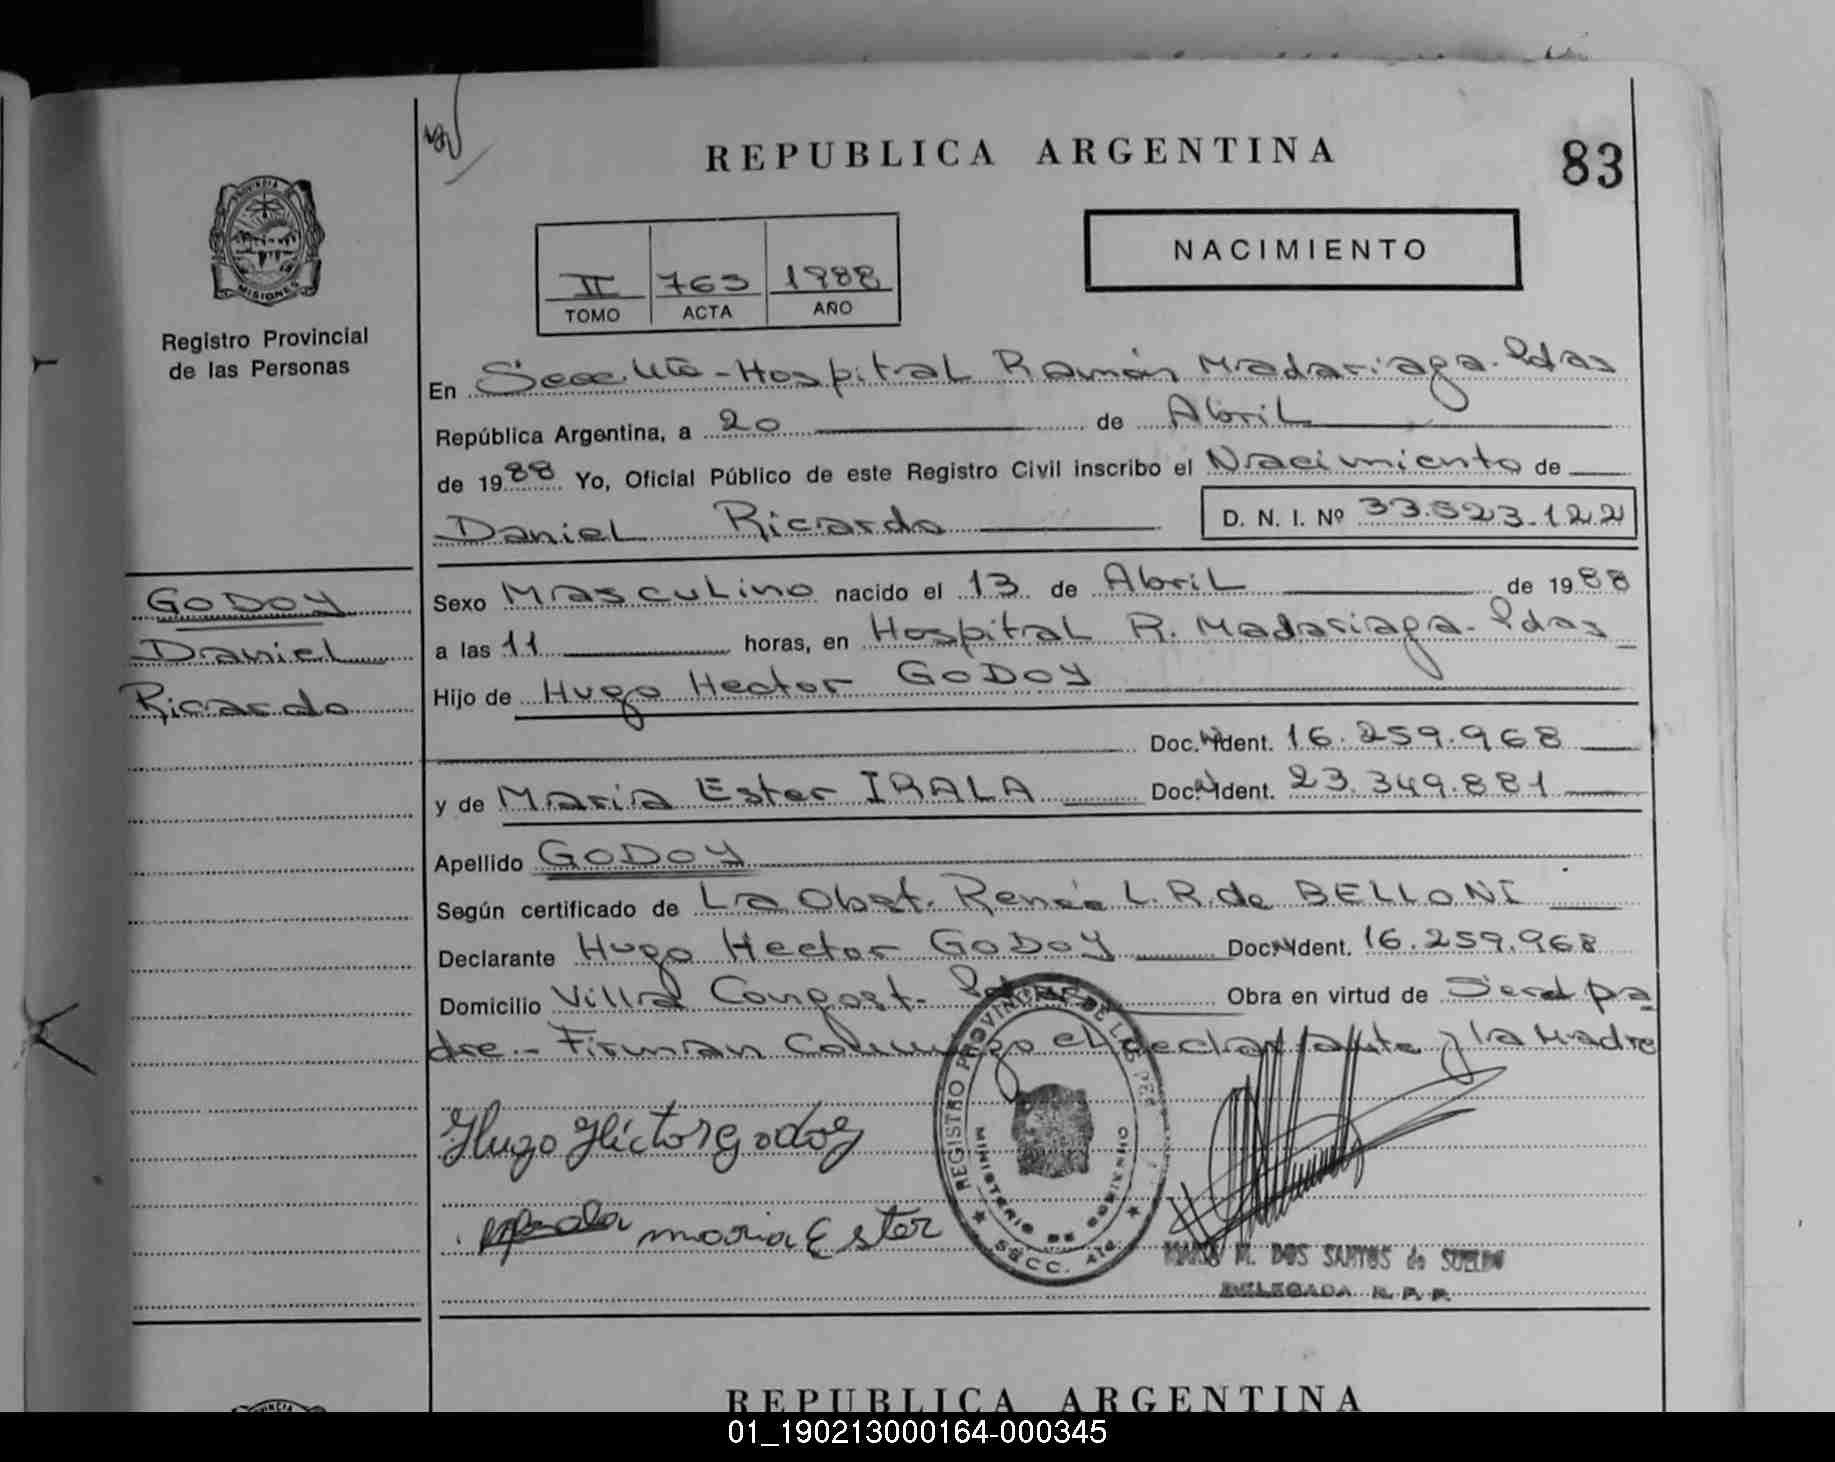 REPUBLICA ARGENTINA
83
PROVINCIA DE
MISIONES
Registro Provincial
de las Personas
II 763 1988
TOMO ACTA AÑO
NACIMIENTO
En Secc. 4ta - Hospital Ramón Madariaga. Pdas
República Argentina, a 20 de Abril
de 1988 Yo, Oficial Público de este Registro Civil inscribo el Nacimiento de
Daniel Ricardo D. N. I. Nº 33.523.122
GODOY
Daniel
Ricardo
Sexo Masculino nacido el 13 de Abril de 1988
a las 11 horas, en Hospital R. Madariaga. Pdas
Hijo de Hugo Hector GODOY
Doc. Ident. 16.259.968
y de Maria Ester IRALA Doc. Ident. 23.349.881
Apellido GODOY
Según certificado de La Obst. Renée L. R. de BELLONI
Declarante Hugo Hector GODOY Doc. Ident. 16.259.968
Domicilio Villa Obra en virtud de Ser el pa
dre.- Firman Conmigo el declarante y la Madre
Hugo Héctor Godoy
maria Ester
REGISTRO PROVINCIAL DE LAS PER
MINISTERIO DE GOBIERNO
SECC. 4ta
M. DOS SANTOS de
DELEGADA R. P. P.
REPUBLICA ARGENTINA
01_190213000164-000345